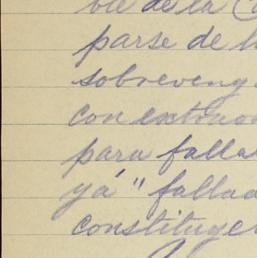 ble de la C
parse de l
sobreveng
con extraor
para falla
ya" fallad
constituye